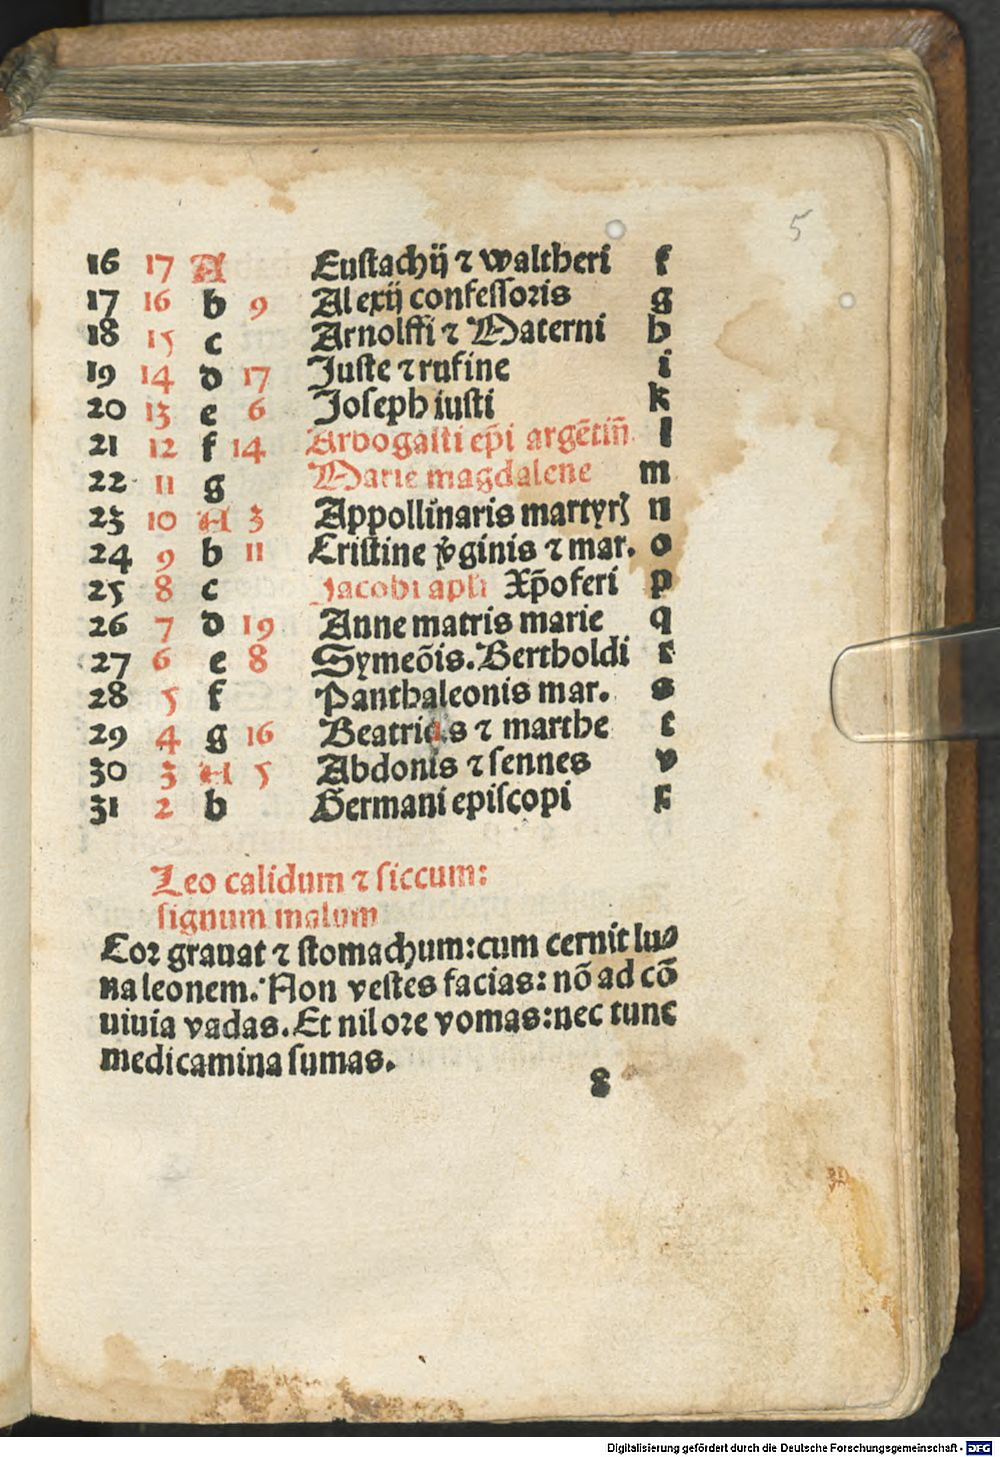 5
16 17 A Eustachij ⁊ waltheri f
17 16 b 9 Alexij confessoris g
18 15 c Arnolffi ⁊ Materni h
19 14 d 17 Juste ⁊ rufine i
20 13 e 6 Joseph iusti k
21 12 f 14 Arbogasti ep̄i argētiñ. l
22 11 g Marie magdalene m
23 10 A 3 Appollinaris martyrꝭ n
24 9 b 11 Cristine v̾ginis ⁊ mar. o
25 8 c Jacobi apl̄i Xp̄oferi p
26 7 d 19 Anne matris marie q
27 6 e 8 Symeōis. Bertholdi r
28 5 f Panthaleonis mar. s
29 4 g 16 Beatricis ⁊ marthe t
30 3 A 5 Abdonis ⁊ sennes v
31 2 b Germani episcopi x
Leo calidum ⁊ siccum:
signum malum
Cor grauat ⁊ stomachum: cum cernit lu⸗
na leonem. Non vestes facias: nō ad cō
uiuia vadas. Et nil ore vomas: nec tunc
medicamina sumas.
8
Digitalisierung gefördert durch die Deutsche Forschungsgemeinschaft - DFG